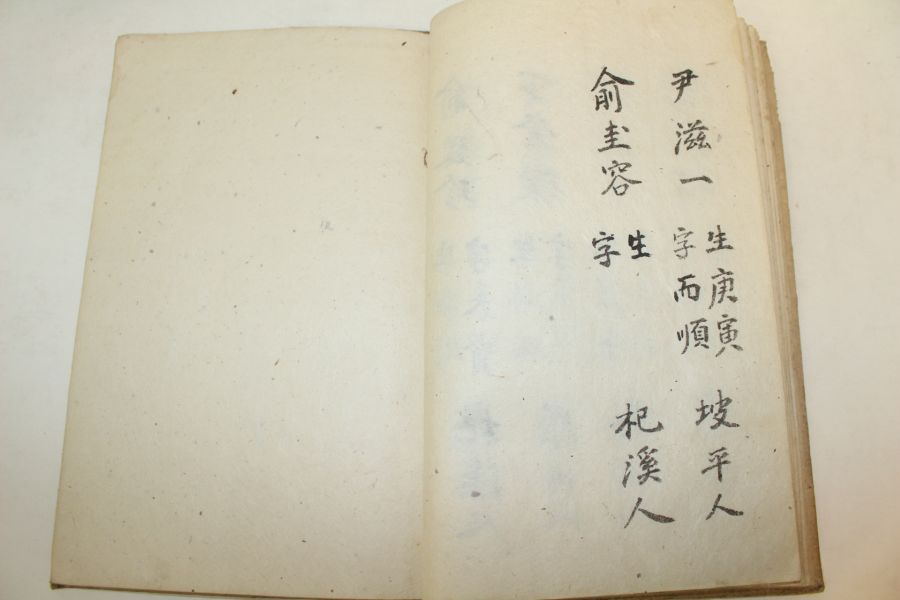 尹滋一
生庚寅
字而順
坡平人
俞圭容
生
字
杞溪人